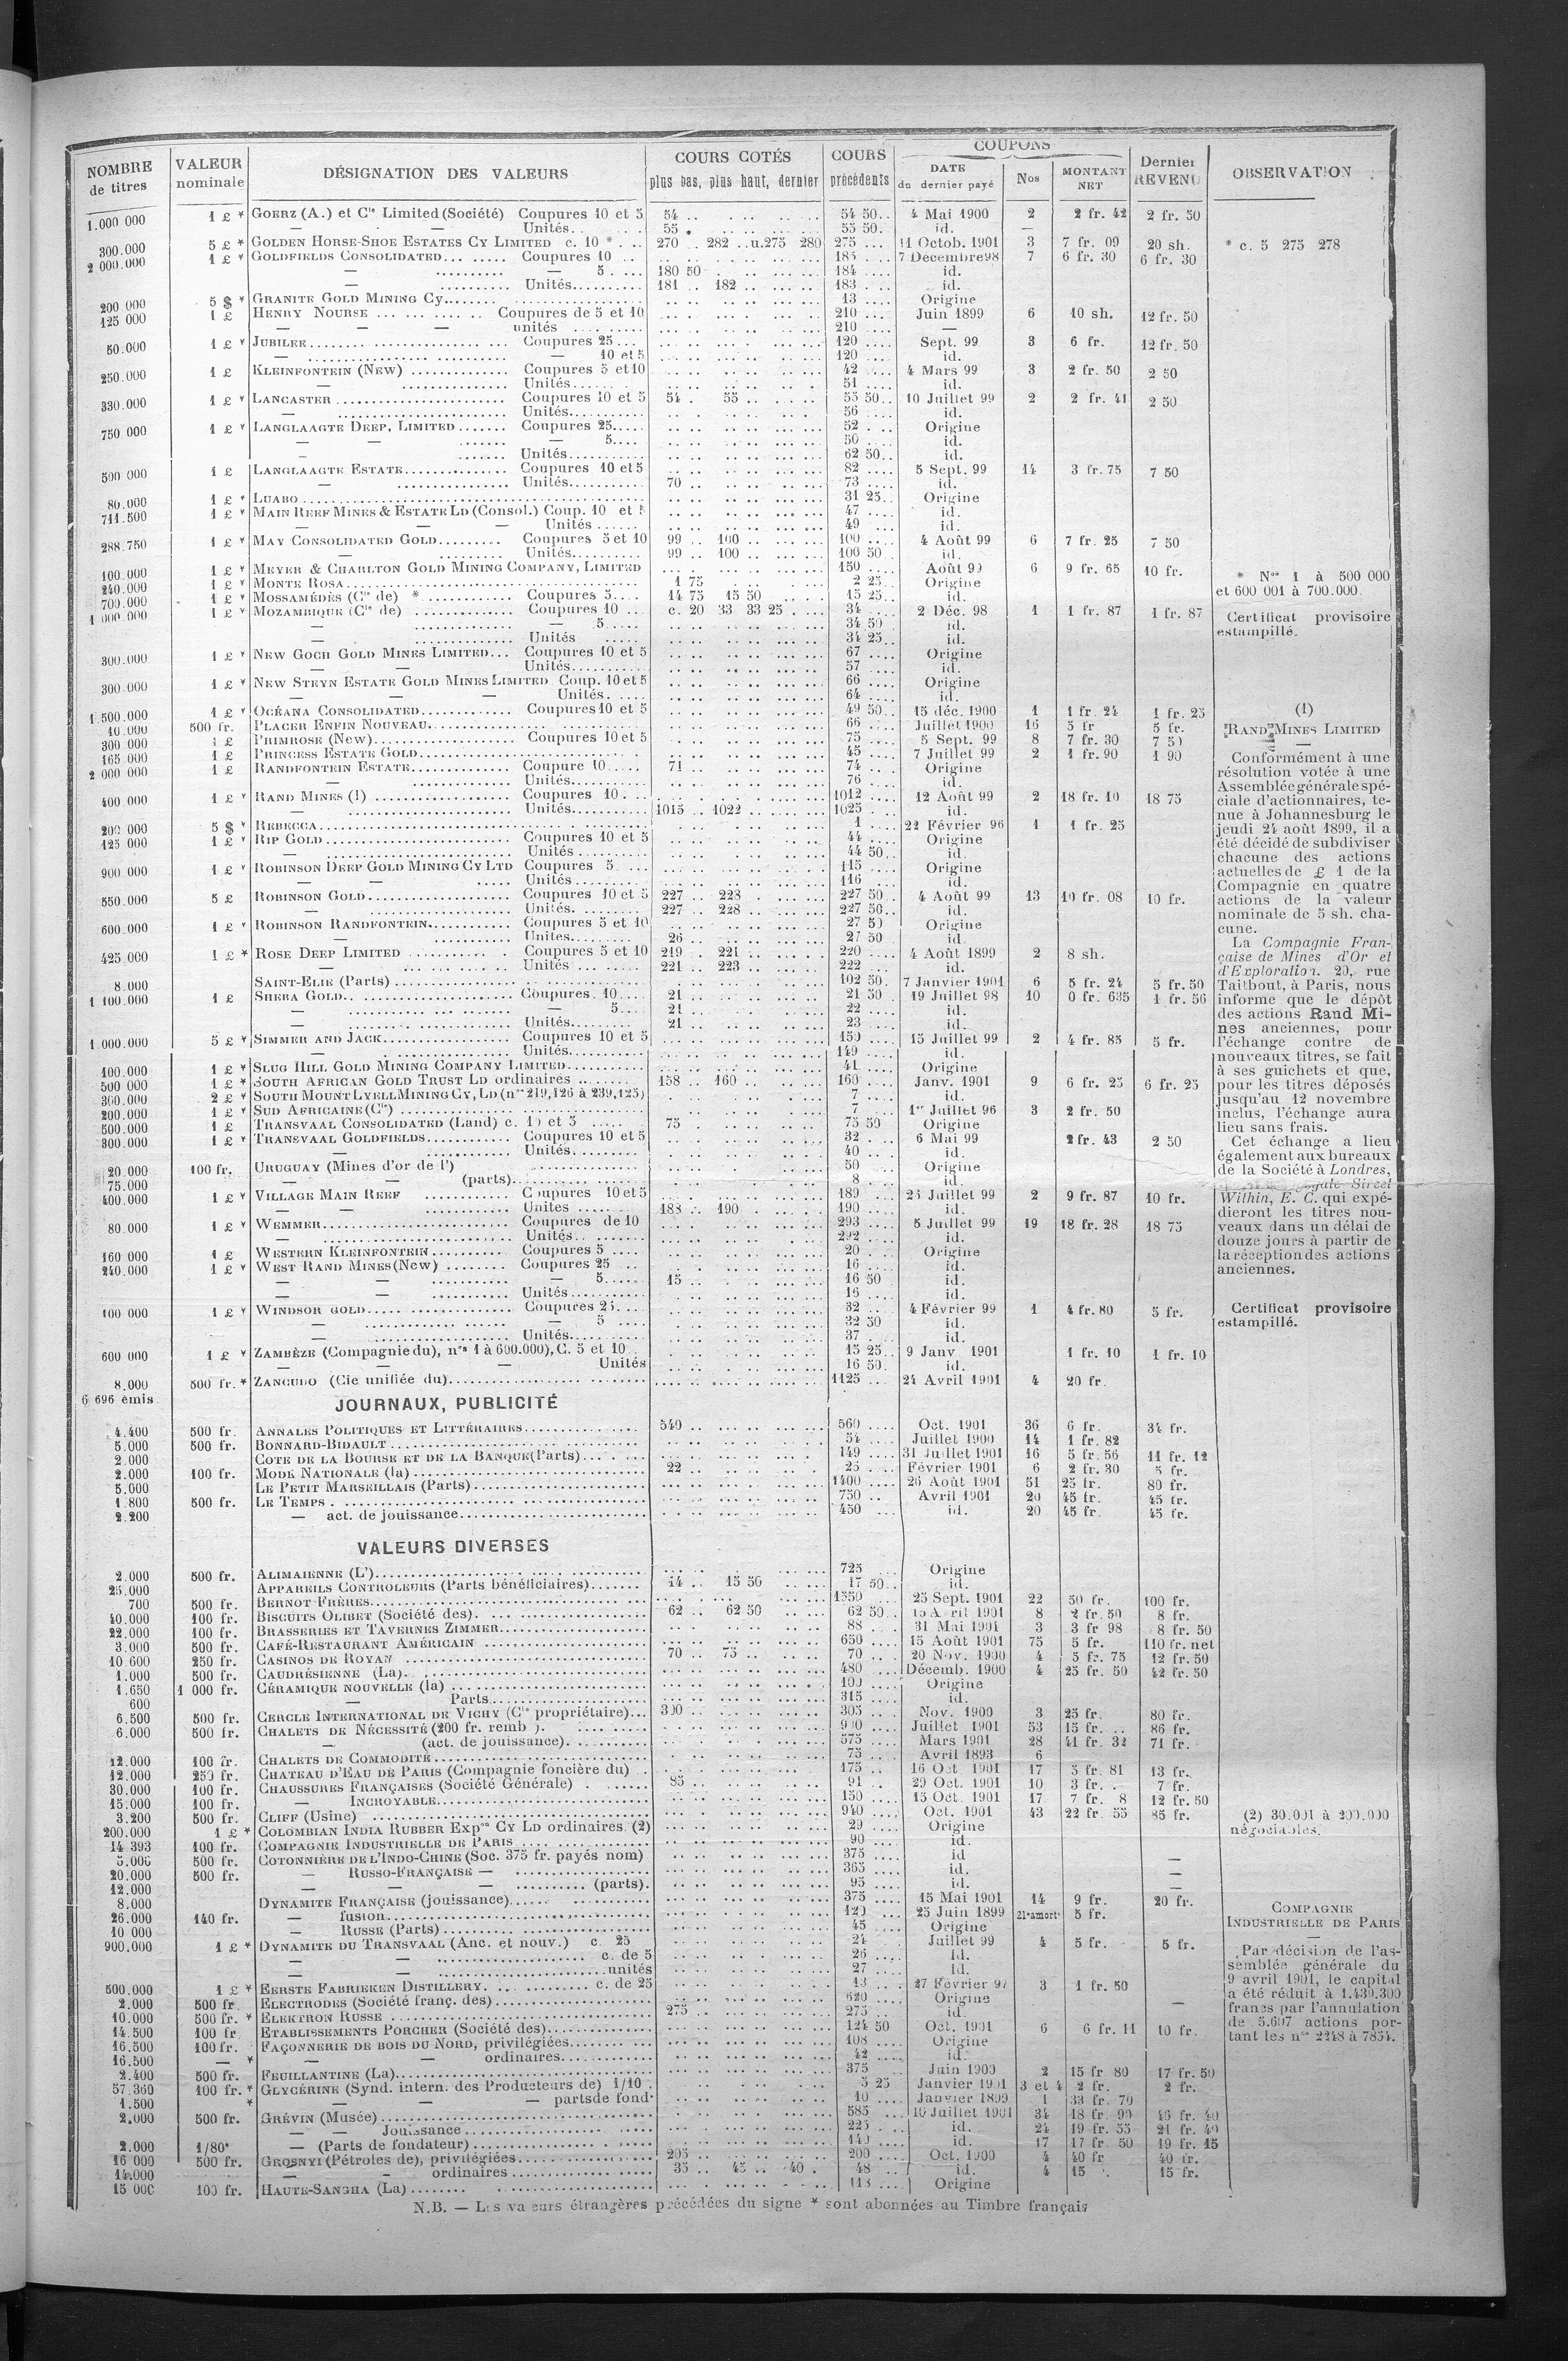 COUPONS
NOMBRE de titres | VALEUR nominale | DÉSIGNATION DES VALEURS | COURS COTÉS plus bas, plus haut, dernier | COURS précédents | DATE du dernier payé | Nos | MONTANT NET | Dernier REVENU | OBSERVATION
1.000 000 1 £ * GOERZ (A.) et Cie Limited (Société) Coupures 10 et 5 54 .. 54 50.. 4 Mai 1900 2 2 fr. 42 2 fr. 50
— Unités.. 55 . 55 50. id. —
300.000 5 £ * GOLDEN HORSE-SHOE ESTATES CY LIMITED c. 10 * 270 .. 282 ..u.275 280 275 ... 11 Octob. 1901 3 7 fr. 09 20 sh. * c. 5 275 278
2 000.000 1 £ * GOLDFIELDS CONSOLIDATED... Coupures 10 .. 185 .... 7 Décembre 98 7 6 fr. 30 6 fr. 30
— — 5. 180 50 184 .... id.
— Unités.......... 181 .. 182 .. 183 .. id.
200.000 5 $ * GRANITE GOLD MINING Cy........ 13 .... Origine
125 000 1 £ HENRY NOURSE ... Coupures de 5 et 10 210 .... Juin 1899 6 10 sh. 12 fr. 50
— — — unités 210 .... —
50.000 1 £ * JUBILEE........ Coupures 25 ... 120 .... Sept. 99 3 6 fr. 12 fr. 50
— — 10 et 5 120 .... id.
250.000 1 £ KLEINFONTEIN (NEW) .............. Coupures 5 et 10 42 .... 4 Mars 99 3 2 fr. 50 2 50
— Unités 51 .... id.
330.000 1 £ * LANCASTER ........ Coupures 10 et 5 54 . 55 .. 55 50.. 10 Juillet 99 2 2 fr. 41 2 50
— Unités........... 56 .... id.
750 000 1 £ * LANGLAAGTE DEEP, LIMITED ....... Coupures 25..... 52 .... Origine
— — — 5.... 50 .... id.
— Unités........... 62 50.. id.
500 000 1 £ LANGLAAGTE ESTATE............... Coupures 10 et 5 82 .... 5 Sept. 99 14 3 fr. 75 7 50
— Unités........... 70 .. 73 .... id.
80.000 1 £ * LUABO ........ 31 25.. Origine
711.500 1 £ * MAIN REEF MINES & ESTATE LD (Consol.) Coup. 10 et 5 47 .... id.
— — — Unités ...... 49 .... id.
288.750 1 £ * MAY CONSOLIDATED GOLD......... Coupures 5 et 10 99 .. 100 .. 100 .... 4 Août 99 6 7 fr. 25 7 50
— Unités.......... 99 .. 100 .. 100 50 id.
100.000 1 £ * MEYER & CHARLTON GOLD MINING COMPANY, LIMITED 150 .... Août 99 6 9 fr. 65 10 fr. * Nos 1 à 500 000
240.000 1 £ * MONTE ROSA........ 1 75 2 25.. Origine et 600 001 à 700.000.
700.000 1 £ * MOSSAMÉDÈS (Cie de) * ............ Coupures 5.... 14 75 15 50 15 25.. id.
1 000 000 1 £ * MOZAMBIQUE (Cie de) .............. Coupures 10 .. c. 20 33 33 25 34 .... 2 Déc. 98 1 1 fr. 87 1 fr. 87 Certificat provisoire
— — 5..... 34 50 id. estampillé.
— Unités 34 25.. id.
300.000 1 £ * NEW GOCH GOLD MINES LIMITED... Coupures 10 et 5 67 .... Origine
— — Unités........... 57 .... id.
300.000 1 £ * NEW STEYN ESTATE GOLD MINES LIMITED Coup. 10 et 5 66 .... Origine
— — — Unités. .... 64 .... id.
1.500.000 1 £ * OCÉANA CONSOLIDATED............ Coupures 10 et 5 49 50.. 15 déc. 1900 1 1 fr. 24 1 fr. 25 (1)
10.000 500 fr. PLACER ENFIN NOUVEAU........ 66 ... Juillet 1900 16 5 fr 5 fr. RAND MINES LIMITED
300 000 1 £ PRIMROSE (New)........ Coupures 10 et 5 75 .... 5 Sept. 99 8 7 fr. 30 7 50 —
165.000 1 £ PRINCESS ESTATE GOLD........ 45 .... 7 Juillet 99 2 1 fr. 90 1 90 Conformément à une
2 000 000 1 £ RANDFONTEIN ESTATE.............. Coupure 10..... 71 74 ... Origine résolution votée à une
— Unités........... 76 ... id. Assemblée générale spé-
400.000 1 £ * RAND MINES (1) .................. Coupures 10. .. 1012 .... 12 Août 99 2 18 fr. 10 18 75 ciale d'actionnaires, te-
— Unités........... 1015 .. 1022 .. 1025 ... id. nue à Johannesburg le
200 000 5 $ * REBECCA........ 1 .... 22 Février 96 1 1 fr. 25 jeudi 24 août 1899, il a
125 000 1 £ * RIP GOLD........ Coupures 10 et 5 44 .... Origine été décidé de subdiviser
— Unités .......... 44 50.. id. chacune des actions
900 000 1 £ * ROBINSON DEEP GOLD MINING CY LTD Coupures 5 ... 115 .... Origine actuelles de £ 1 de la
— — Unités......... 116 ... id. Compagnie en quatre
550.000 5 £ ROBINSON GOLD........ Coupures 10 et 5 227 .. 228 227 50.. 4 Août 99 13 10 fr. 08 10 fr. actions de la valeur
— Unités. 227 .. 228 .. 227 50.. id. nominale de 5 sh. cha-
600.000 1 £ * ROBINSON RANDFONTEIN............ Coupures 5 et 10 27 50 Origine cune.
— Unités........ 26 .. 27 50 id. La Compagnie Fran-
425.000 1 £ * ROSE DEEP LIMITED ........... Coupures 5 et 10 219 . 221 .. 220 .... 4 Août 1899 2 8 sh. çaise de Mines d'Or et
— Unités 221 .. 223 .. 222 ... id. d'Exploration. 20, rue
8.000 SAINT-ELIE (Parts) ........ 102 50. 7 Janvier 1901 6 5 fr. 24 5 fr. 50 Taitbout, à Paris, nous
1 100.000 1 £ SHEBA GOLD........ Coupures. 10... 21 .. 21 50 . 19 Juillet 98 10 0 fr. 635 1 fr. 56 informe que le dépôt
— — 5.... 21 .. 22 .... id. des actions Rand Mi-
— Unités........ 21 .. 23 .... id. nes anciennes, pour
1.000.000 5 £ * SIMMER AND JACK.................. Coupures 10 et 5 150 .... 15 Juillet 99 2 4 fr. 85 5 fr. l'échange contre de
— Unités........... 149 .... id. nouveaux titres, se fait
100.000 1 £ * SLUG HILL GOLD MINING COMPANY LIMITED........... 41 .... Origine à ses guichets et que,
500 000 1 £ * SOUTH AFRICAN GOLD TRUST LD ordinaires ... 158 .. 160 .. 160 .... Janv. 1901 9 6 fr. 25 6 fr. 25 pour les titres déposés
360.000 2 £ * SOUTH MOUNT LYELL MINING CY, LD (nos 219,126 à 239,125) 7 .... id. jusqu'au 12 novembre
200.000 1 £ * SUD AFRICAINE (Cie) ........ 7 .... 1er Juillet 96 3 2 fr. 50 inclus, l'échange aura
500.000 1 £ TRANSVAAL CONSOLIDATED (Land) c. 10 et 5 ..... 75 .. 75 50 Origine lieu sans frais.
300.000 1 £ * TRANSVAAL GOLDFIELDS............ Coupures 10 et 5 32 .... 6 Mai 99 2 fr. 43 2 50 Cet échange a lieu
— Unités.......... 40 .... id. également aux bureaux
20.000 100 fr. URUGUAY (Mines d'or de l') ........ 50 .... Origine de la Société à Londres,
75.000 — — (parts)........ 8 .... id. Street
400.000 1 £ * VILLAGE MAIN REEF ............ Coupures 10 et 5 189 ... 25 Juillet 99 2 9 fr. 87 10 fr. Within, E. C. qui expé-
— — Unités ....... 188 .. 190 .. 190 .... id. dieront les titres nou-
80.000 1 £ * WEMMER........ Coupures de 10 293 .... 5 Juillet 99 19 18 fr. 28 18 75 veaux dans un délai de
— Unités.. 292 ... id. douze jours à partir de
160 000 1 £ WESTERN KLEINFONTEIN.......... Coupures 5 .... 20 ... Origine la réception des actions
240.000 1 £ * WEST RAND MINES (New) ........ Coupures 25 ... 16 .... id. anciennes.
— — — 5...... 15 .. 16 50 id.
— — Unités........... 16 .... id.
100 000 1 £ * WINDSOR GOLD........ Coupures 25.... 32 .... 4 Février 99 1 4 fr. 80 5 fr. Certificat provisoire
— — 5 .... 32 50 id. estampillé.
— Unités........... 37 ... id.
600 000 1 £ * ZAMBÈZE (Compagnie du), nos 1 à 600.000), C. 5 et 10 . 15 25.. 9 Janv 1901 1 fr. 10 1 fr. 10
— — — Unités 16 50. id.
8.000 500 fr. * ZANCUDO (Cie unifiée du)........ 1125 ... 24 Avril 1901 4 20 fr.
6 696 émis.
JOURNAUX, PUBLICITÉ
4.400 500 fr. ANNALES POLITIQUES ET LITTÉRAIRES........ 540 .. 560 .... Oct. 1901 36 6 fr. 34 fr.
5.000 500 fr. BONNARD-BIDAULT ........ 54 .... Juillet 1900 14 1 fr. 82
2.000 COTE DE LA BOURSE ET DE LA BANQUE (Parts)........ 149 .... 31 Juillet 1901 16 5 fr. 56 11 fr. 12
2.000 100 fr. MODE NATIONALE (la) ........ 22 .. 25 ... Février 1901 6 2 fr. 30 5 fr.
5.000 LE PETIT MARSEILLAIS (Parts)........ 1400 .... 26 Août 1901 51 25 fr. 80 fr.
1.800 500 fr. LE TEMPS ........ 750 .. Avril 1901 20 45 fr. 45 fr.
2.200 — act. de jouissance........ 450 ... id. 20 45 fr. 45 fr.
VALEURS DIVERSES
2.000 500 fr. ALIMAIENNE (L')........ 725 Origine
25.000 APPAREILS CONTROLEURS (Parts bénéficiaires)....... 14 .. 15 50 17 50.. id.
700 500 fr. BERNOT FRÈRES........ 1350 .... 25 Sept. 1901 22 50 fr. 100 fr.
40.000 100 fr. BISCUITS OLIBET (Société des)........ 62 .. 62 50 62 50.. 15 Avril 1901 8 2 fr. 50 8 fr.
22.000 100 fr. BRASSERIES ET TAVERNES ZIMMER........ 88 ... 31 Mai 1901 3 3 fr 98 8 fr. 50
3.000 500 fr. CAFÉ-RESTAURANT AMÉRICAIN ........ 650 .... 15 Août 1901 75 5 fr. 110 fr. net
10 600 250 fr. CASINOS DE ROYAN ........ 70 .. 75 .. 70 .. 20 Nov. 1900 4 5 fr. 75 12 fr. 50
1.000 500 fr. CAUDRÉSIENNE (La)........ 480 .... Décemb. 1900 4 25 fr. 50 42 fr. 50
1.650 1 000 fr. CÉRAMIQUE NOUVELLE (la) ........ 100 .... Origine
600 — Parts........ 315 .... id.
6.500 500 fr. CERCLE INTERNATIONAL DE VICHY (Cie propriétaire)... 300 .. 305 .... Nov. 1900 3 25 fr. 80 fr.
6.000 500 fr. CHALETS DE NÉCESSITÉ (200 fr. remb ). 900 .... Juillet 1901 53 15 fr. .. 86 fr.
— (act. de jouissance). 575 .... Mars 1901 28 41 fr. 32 71 fr.
12.000 100 fr. CHALETS DE COMMODITÉ........ 75 .... Avril 1893 6
12.000 250 fr. CHATEAU D'EAU DE PARIS (Compagnie foncière du) .. 175 ... 16 Oct 1901 17 5 fr. 81 13 fr.
30.000 100 fr. CHAUSSURES FRANÇAISES (Société Générale) 85 .. 91 .. 20 Oct. 1901 10 3 fr. . 7 fr.
15.000 100 fr. — INCROYABLE........ 150 .... 15 Oct. 1901 17 7 fr. 8 12 fr. 50
3.200 500 fr. CLIFF (Usine) ........ 940 .... Oct. 1901 43 22 fr. 55 85 fr. (2) 30.001 à 200.000
200.000 1 £ * COLOMBIAN INDIA RUBBER Expon CY LD ordinaires. (2) 29 .... Origine négociables.
14 393 100 fr. COMPAGNIE INDUSTRIELLE DE PARIS ........ 90 .... id.
5.000 500 fr. COTONNIÈRE DE L'INDO-CHINE (Soc. 375 fr. payés nom) 375 .... id —
20.000 500 fr. — RUSSO-FRANÇAISE — 365 .... id. —
12.000 — — — .......... (parts). 95 .... id. —
8.000 DYNAMITE FRANÇAISE (jouissance)........ 375 .... 15 Mai 1901 14 9 fr. 20 fr.
26.000 140 fr. — fusion........ 120 .... 25 Juin 1899 21e amort 5 fr. COMPAGNIE
10 000 — RUSSE (Parts)........ 45 .... Origine INDUSTRIELLE DE PARIS
900.000 1 £ * DYNAMITE DU TRANSVAAL (Anc. et nouv.) c. 25 24 .... Juillet 99 4 5 fr. 5 fr. —
— — c. de 5 26 .... id. Par décision de l'as-
— — unités 27 .... id. semblée générale du
500.000 1 £ * EERSTE FABRIEKEN DISTILLERY. ... c. de 25 13 .... 27 Février 97 3 1 fr. 50 9 avril 1901, le capital
2.000 500 fr ELECTRODES (Société franç. des)........ 620 .... Origine a été réduit à 1.439.300
10.000 500 fr. * ELEKTRON RUSSE ........ 275 .. 275 ... id — francs par l'annulation
14.500 100 fr. ETABLISSEMENTS PORCHER (Société des)........ 124 50 Oct. 1901 6 6 fr. 11 10 fr. de 5.607 actions por-
16.500 100 fr. FAÇONNERIE DE BOIS DU NORD, privilégiées........ 108 .... Origine tant les nos 2248 à 7854.
16.500 — * — — ordinaires........ 42 .... id.
2.400 500 fr. FEUILLANTINE (La)........ 375 Juin 1900 2 15 fr 80 17 fr. 50
57.360 100 fr. * GLYCÉRINE (Synd. intern. des Producteurs de) 1/10 . 5 25 Janvier 1901 3 et 4 2 fr. 2 fr.
1.500 * — — — parts de fond. 10 ... Janvier 1899 1 33 fr. 70
2.000 500 fr. GRÉVIN (Musée) ........ 585 ... 10 Juillet 1901 34 18 fr. 90 46 fr. 40
— — Jouissance ........ 225 .. id. 24 19 fr. 55 21 fr. 40
2.000 1/80e — (Parts de fondateur) ........ 140 .. id. 17 17 fr. 50 19 fr. 15
16 000 500 fr. GROSNYI (Pétroles de), privilégiées........ 205 .. 200 ... Oct. 1900 4 40 fr 40 fr.
14.000 — — ordinaires ........ 35 .. 45 .. 40 . 48 .. id. 4 15 . 15 fr.
15 000 100 fr. HAUTE-SANGHA (La) ........ 113 ... Origine
N.B. — Les valeurs étrangères précédées du signe * sont abonnées au Timbre français